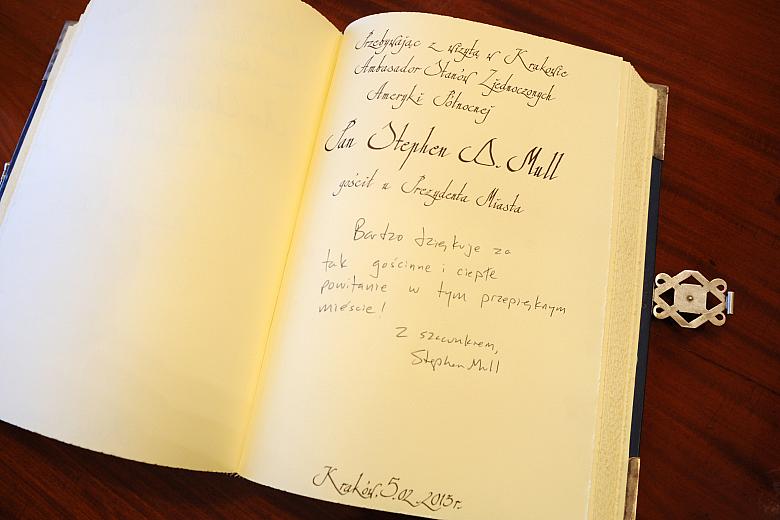 Przebywając z wizytą w Krakowie
Ambasador Stanów Zjednoczonych
Ameryki Północnej
Pan Stephen D. Mull
gościł u Prezydenta Miasta
Bardzo dziękuje za
tak gościnne i ciepłe
powitanie w tym przepięknym
mieście!
Z szacunkiem,
Stephen Mull
Kraków, 5.02.2013r.